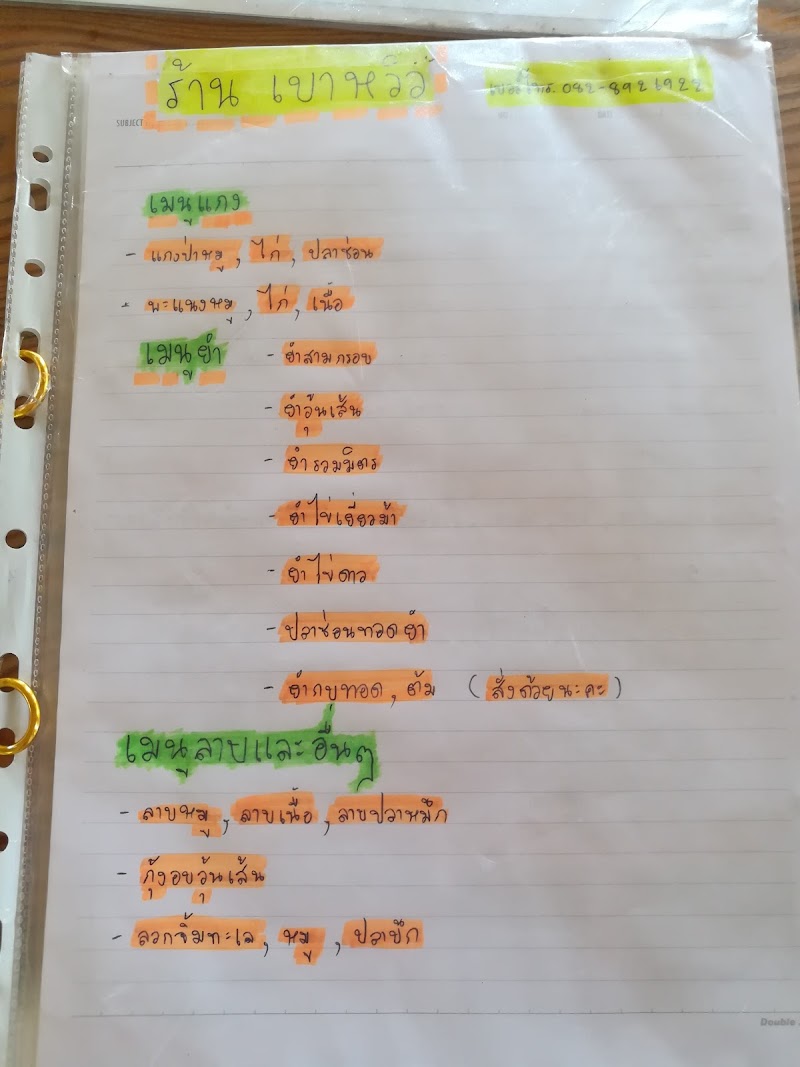 ร้าน เขาหวัว
เบอร์โทร. 082-8926922
SUBJECT
NO DATE
เมนูแกง
- แกงป่าหมู, ไก่, ปลาช่อน
- พะแนงหมู, ไก่, เนื้อ
เมนูยำ - ยำสามกรอบ
- ยำวุ้นเส้น
- ยำรวมมิตร
- ยำไข่เยี่ยวม้า
- ยำไข่ดาว
- ปลาช่อนทอดยำ
- ยำกบทอด, ต้ม (สั่งด้วยนะคะ)
เมนูลาบและอื่นๆ
- ลาบหมู, ลาบเนื้อ, ลาบปลาหมึก
- กุ้งอบวุ้นเส้น
- ลวกจิ้มทะเล, หมู, ปลาบึก
Double